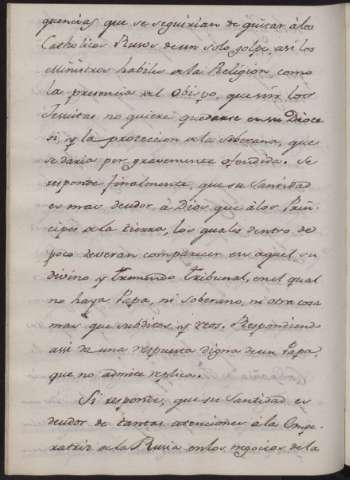 quencias que se seguirian de quitar à los
Catholicos Rusos de un solo golpe, asi los
Ministros habiles a la Religion, como
la presencia del Obispo, que sin los
Jesuitas no quiere quedarse en su Dioce
si, y la proteccion de la Soberana, que
se daria por gravemente ofendida. Se
responde finalmente, que su Santidad
es mas deudor à Dios, que à los Prin-
cipes de la tierra, los quales dentro de
poco deveran comparecer en aquel su
divino y tremendo Tribunal, en el qual
no haya Papa, ni Soberano, ni otra cosa
mas que subditos, y reos. Respondiend
asi da una respuesta digna de un Papa,
que no admite replica.
Si responde, que su Santidad es
deudor de tantas atenciones à la Empe-
ratriz de la Rusia en los negocios de la